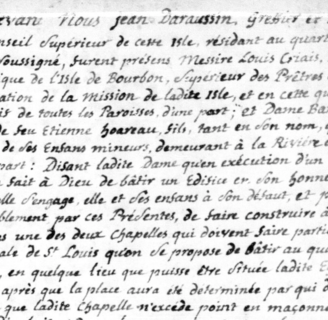 evant Nous Jean Daraussin, Greffier et
nseil Supérieur de cette Isle, résidant au quart
soussigné, furent présens Messire Louis Criais,
ique de l'Isle de Bourbon, Supérieur des Prêtres
ation de la Mission de ladite Isle, et en cette qu
is de toutes les Paroisses, d'une part; et Dame Ba
de feu Etienne hoareau, fils, tant en son nom,
de ses Enfans mineurs, demeurant à la Rivière
part: Disant ladite Dame qu'en exécution d'un
fait à Dieu de bâtir un Edifice en son honne
elle s'engage, elle et ses enfans à son défaut, et p
blement par ces Présentes, de faire construire à
s une des deux Chapelles qui doivent faire partie
ale de St Louis qu'on se propose de bâtir au qu
, en quelque lieu que puisse être située ladite E
après que la place aura été déterminée par qui
que ladite Chapelle n'excède point en maçonn